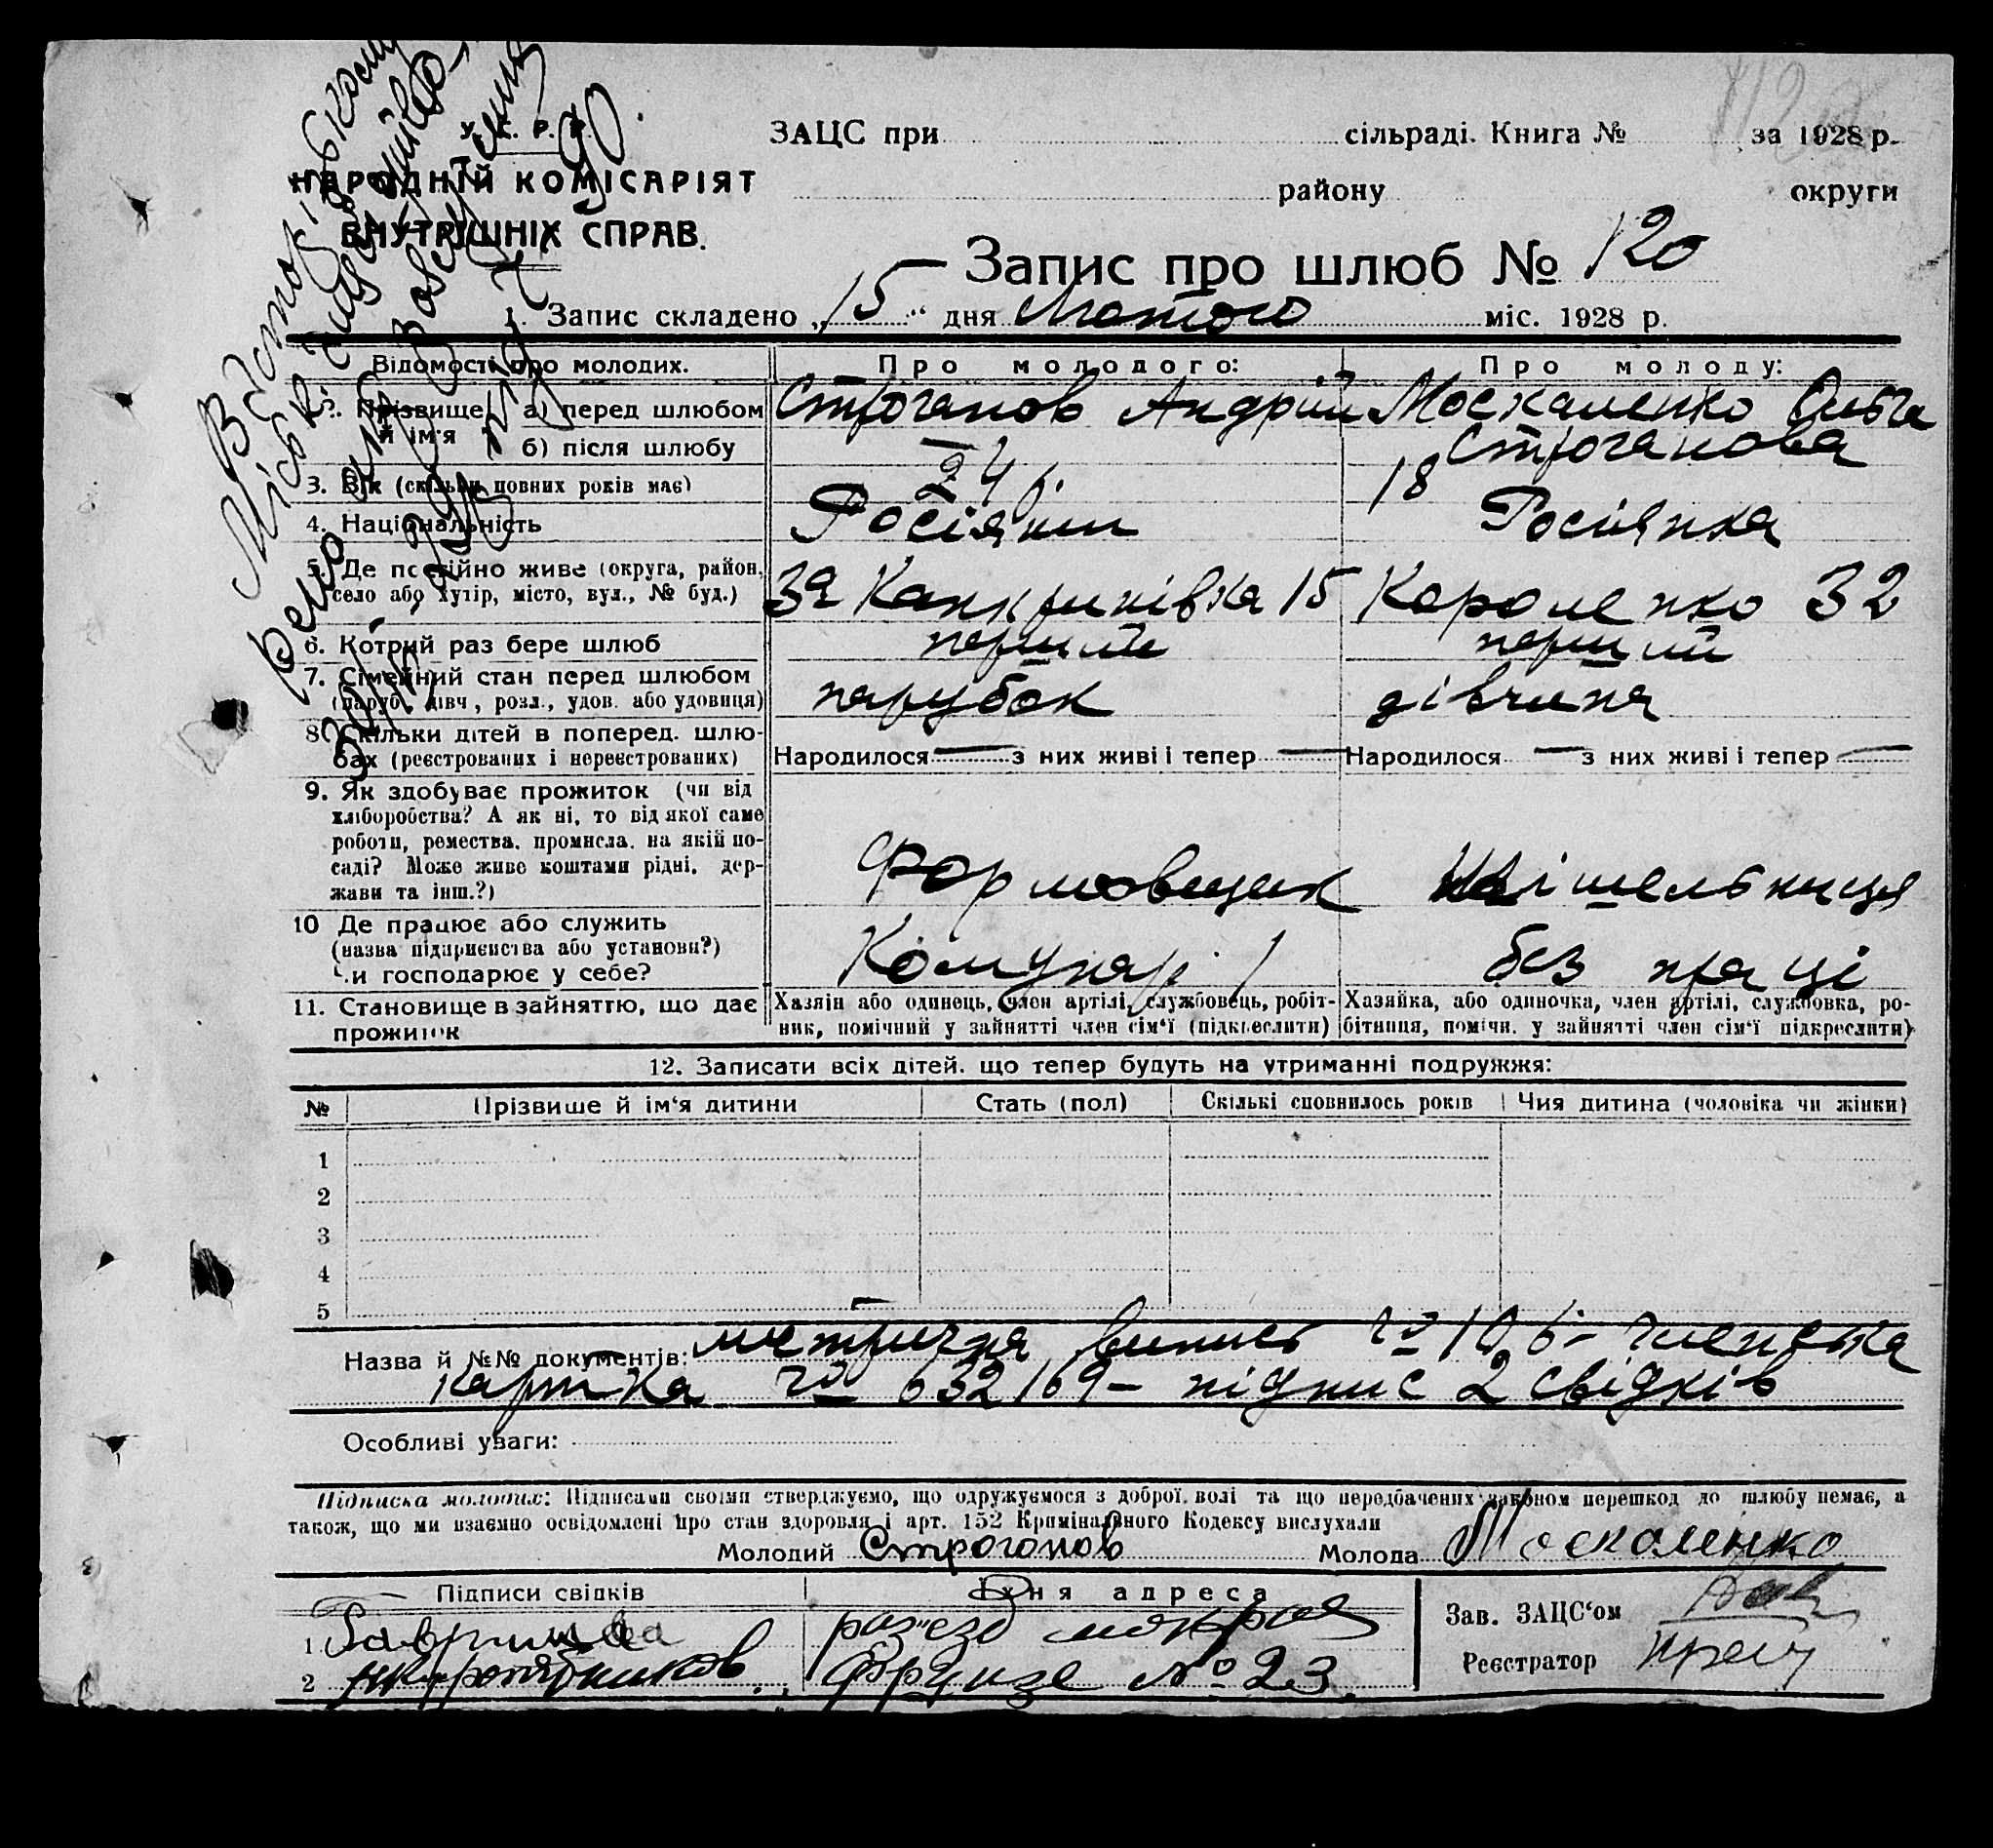 У. С. Р. Р.
НАРОДНІЙ КОМІСАРІЯТ
ВНУТРІШНІХ СПРАВ.
ЗАЦС при сільраді. Книга № за 1928 р.
району округи
Запис про шлюб № 120
1. Запис складено „15" дня Лютого міс. 1928 р.
Відомості про молодих. Про молодого: Про молоду:
2. Прізвище й ім'я а) перед шлюбом Строганов Андрій Москаленко Ольга
б) після шлюбу — Строганова
3. Вік (скільки повних років має) 24 р. 18
4. Національність Росіянин Росіянка
5. Де постійно живе (округа, район, село або хутір, місто, вул., № буд.) За Канкринівка 15 Короленко 32
6. Котрий раз бере шлюб перший перший
7. Сімейний стан перед шлюбом (паруб., дівч., розл., удов. або удовиця) парубок дівчина
8. Скільки дітей в поперед. шлюбах (реєстрованих і нереєстрованих) Народилося — з них живі і тепер — Народилося — з них живі і тепер —
9. Як здобуває прожиток (чи від
хліборобства? А як ні, то від якої саме
роботи, ремества, промисла, на якій по-
саді? Може живе коштами рідні, дер-
жави та інш.?) Формовщик
10 Де працює або служить
(назва підприємства або установи?)
Чи господарює у себе? Комунар без праці
11. Становище в зайняттю, що дає прожиток
Хазяїн або одинець, член артілі, службовець, робіт-
ник, помічний у зайнятті член сім'ї (підкреслити)
Хазяйка, або одиночка, член артілі, службовка, ро-
бітниця, помічн. у зайнятті член сім'ї підкреслити)
12. Записати всіх дітей, що тепер будуть на утриманні подружжя:
№ Прізвище й ім'я дитини Стать (пол) Скількі сповнилось років Чия дитина (чоловіка чи жінки)
1
2
3
4
5
Назва й №№ документів: метрична випись № 106 – членська
картка № 632/69 – підпис 2 свідків
Особливі уваги:
Підписка молодих: Підписами своїми стверджуємо, що одружуємося з доброї волі та що передбачених законом перешкод до шлюбу немає, а
також, що ми взаємно освідомлені про стан здоровля і арт. 152 Кримінального Кодексу вислухали
Молодий Строгонов Молода Москаленко
Підписи свідків Їхня адреса Зав. ЗАЦС'ом
1 Гаврилова раз'езд мокрая
Реєстратор
2 Фрунзе № 23.